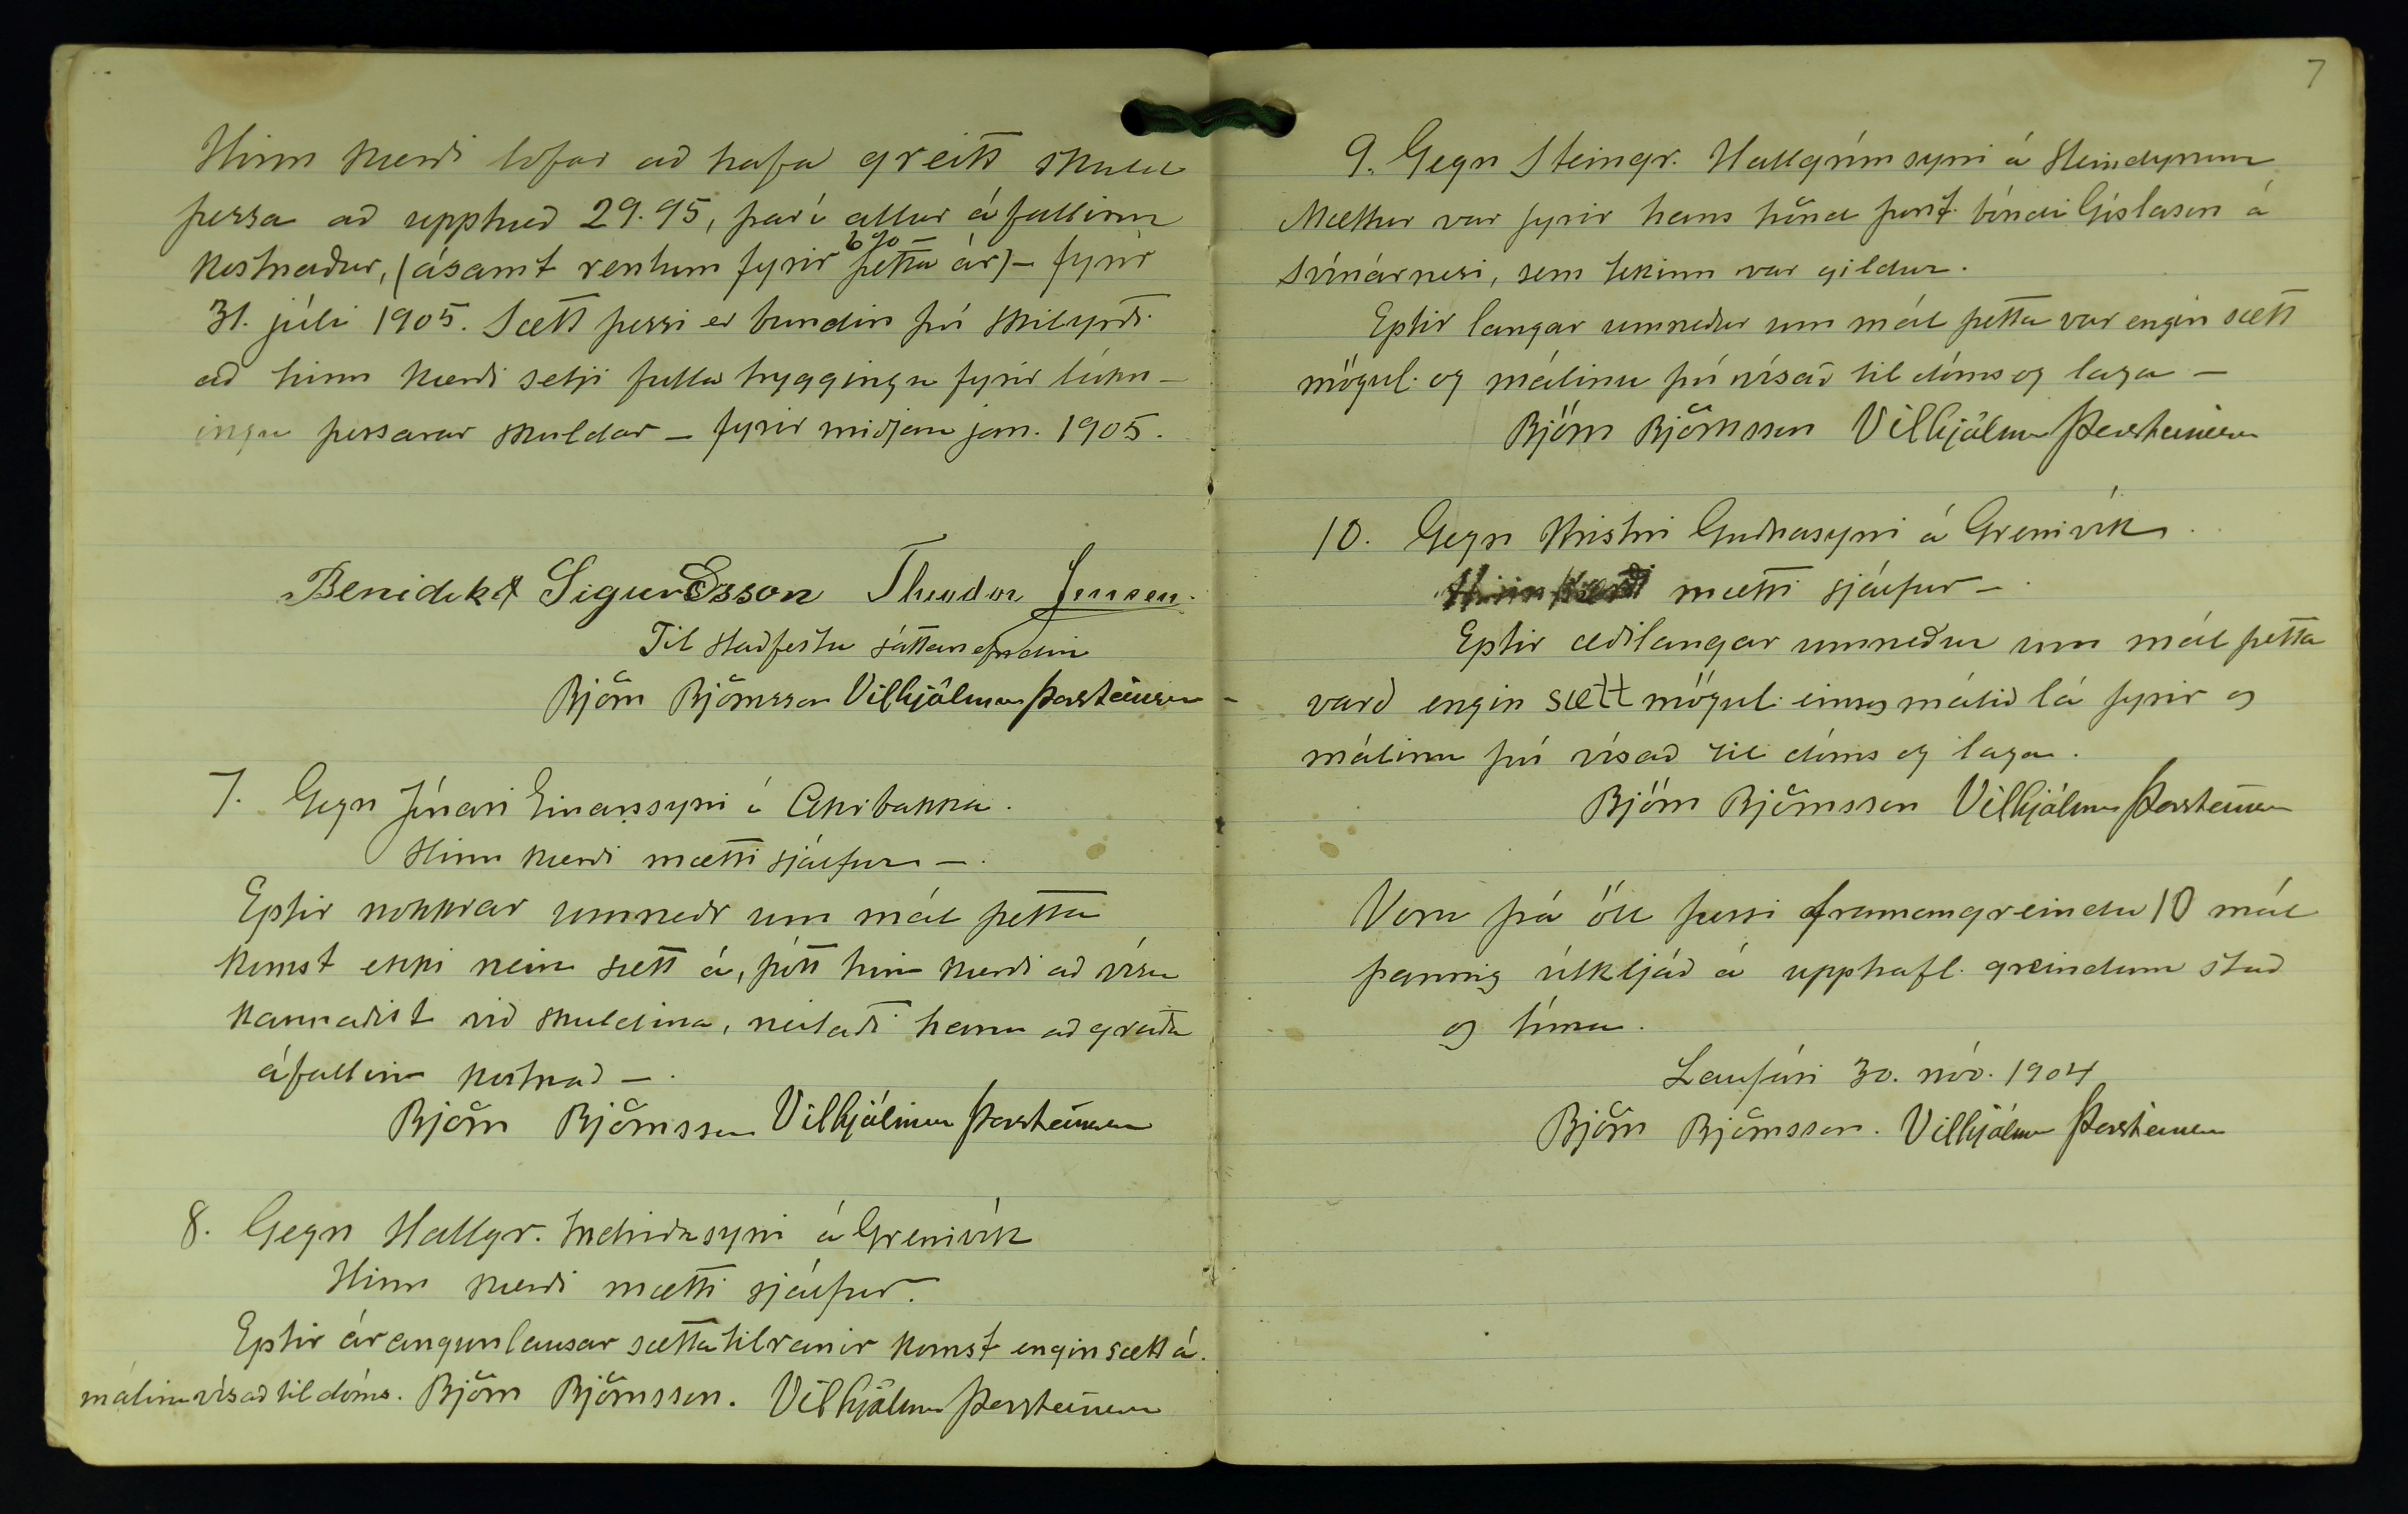 Hinn kærði lofar að hafa greitt skuld
þessa að upphæð 29.95, þarí allur áfallinn
kostnaður, (ásamt rentum fyrir 6% þetta ár) – fyrir
31. júlí 1905. Sætt þessi er bundin því skilyrði
að hinn kærði setji fulla tryggingu fyrir lúkn-
ingu þessarar skuldar – fyrir miðjan jan. 1905.
Benidikt Sigurðsson Theodor Jensen.
Til staðfestu sáttanefndin
Björn Björnsson Vilhjálmur Þorsteinsson
7. Gegn Einarssyni á Akurbakka.
Hinn kærði mætti sjálfur –.
Eptir nokkrar umræðr um mál þetta
komst ekki nein sætt á, þótt hinn kærði að vísu
kannaðist við skuldina, neitaði hann að greiða
áfallinn kostnað –.
Björn Björnsson Vilhjálmur Þorsteinsson
8. Gegn Hallgr. Indriðasyni á Grenivík
Hinn kærði mætti sjálfur.
Eptir árangurslausar sættatilraunir komst engin sætt á.
málinu vísað til dóms. Björn Björnsson. Vilhjálmur Þorsteinsson
7
9. Gegn Steingr. Hallgrímssyni á Steindyrum
Mættur var fyrir hans hönd bóndi Gíslason á
Svínárnesi, sem tekinn var gildur.
Eptir langar umræður um mál þetta var engin sætt
mögul. og málinu því vísað til dóms og laga –
Björn Björnsson Vilhjálmur Þorsteinsson
10. Gegn Kristni Guðnasyni á Grenivík.
Hinn kærði mætti sjálfur –.
Eptir æðilangar umræður um mál þetta
varð engin sætt mögul. eins og málið lá fyrir og
málinu því vísað til dóms og laga.
Björn Björnsson Vilhjálmur Þorsteinsson
Voru þá öll þessi framangreindu 10 mál
þannig útkljáð á upphafl. greindum stað
og tíma.
Laufási 30. nóv. 1904
Björn Björnsson. Vilhjálmur Þorsteinsson